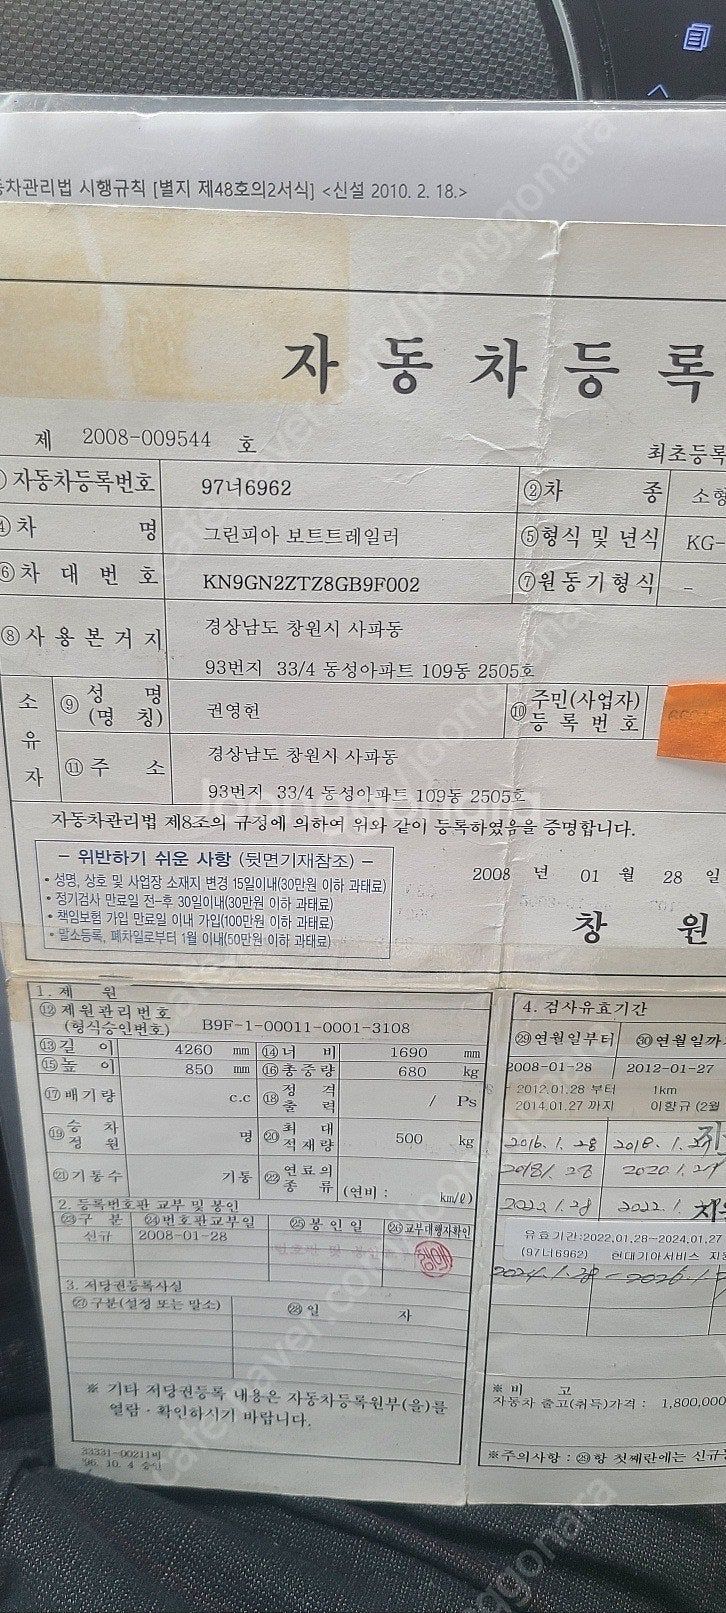 동차관리법 시행규칙 [별지 제48호의2서식] <신설 2010. 2. 18.>
자 동 차 등 록
제 2008-009544 호
최초등록
자동차등록번호 97너6962 ②차 종 소형
④차 명 그린피아 보트트레일러 ⑤형식 및 년식 KG-
⑥차 대 번 호 KN9GN2ZTZ8GB9F002 ⑦원동기형식 -
⑧사 용 본 거 지 경상남도 창원시 사파동
93번지 33/4 동성아파트 109동 2505호
소유자 ⑨성 명 (명 칭) 권영헌 ⑩주민(사업자) 등 록 번 호
⑪주 소 경상남도 창원시 사파동
93번지 33/4 동성아파트 109동 2505호
자동차관리법 제8조의 규정에 의하여 위와 같이 등록하였음을 증명합니다.
- 위반하기 쉬운 사항 (뒷면기재참조) -
• 성명, 상호 및 사업장 소재지 변경 15일이내(30만원 이하 과태료)
• 정기검사 만료일 전~후 30일이내(30만원 이하 과태료)
• 책임보험 가입 만료일 이내 가입(100만원 이하 과태료)
• 말소등록, 폐차일로부터 1월 이내(50만원 이하 과태료)
2008 년 01 월 28 일
창 원
1. 제 원
⑫제원관리번호 (형식승인번호) B9F-1-00011-0001-3108
⑬길 이 4260 mm ⑭너 비 1690 mm
⑮높 이 850 mm ⑯총중량 680 kg
⑰배기량 c.c ⑱정 격 출 력 / Ps
⑲승 차 정 원 명 ⑳최 대 적재량 500 kg
㉑기통수 기통 ㉒연료의 종 류 (연비 : km/ℓ)
2. 등록번호판 교부 및 봉인
㉓구 분 ㉔번호판교부일 ㉕봉 인 일 ㉖교부대행자확인
신규 2008-01-28
3. 저당권등록사실
㉗구분(설정 또는 말소) ㉘일 자
※ 기타 저당권등록 내용은 자동차등록원부(을)를
열람·확인하시기 바랍니다.
33331-00211비
'96. 10. 4 승인
4. 검사유효기간
㉙연월일부터 ㉚연월일까
2008-01-28 2012-01-27
2012.01.28 부터 1km
2014.01.27 까지 이향규 (2월
2016. 1. 28 2018. 1. 27
2018. 1. 28 2020. 1. 27
2022. 1.
유효기간:2022.01.28~2024.01.27
(97너6962) 현대기아서비스 지
2024. 1. 28 - 2026. 1.
※ 비 고
자동차 출고(취득)가격 : 1,800,000
※주의사항 : ㉙항 첫째란에는 신규
cafe.naver.com/joonggonara